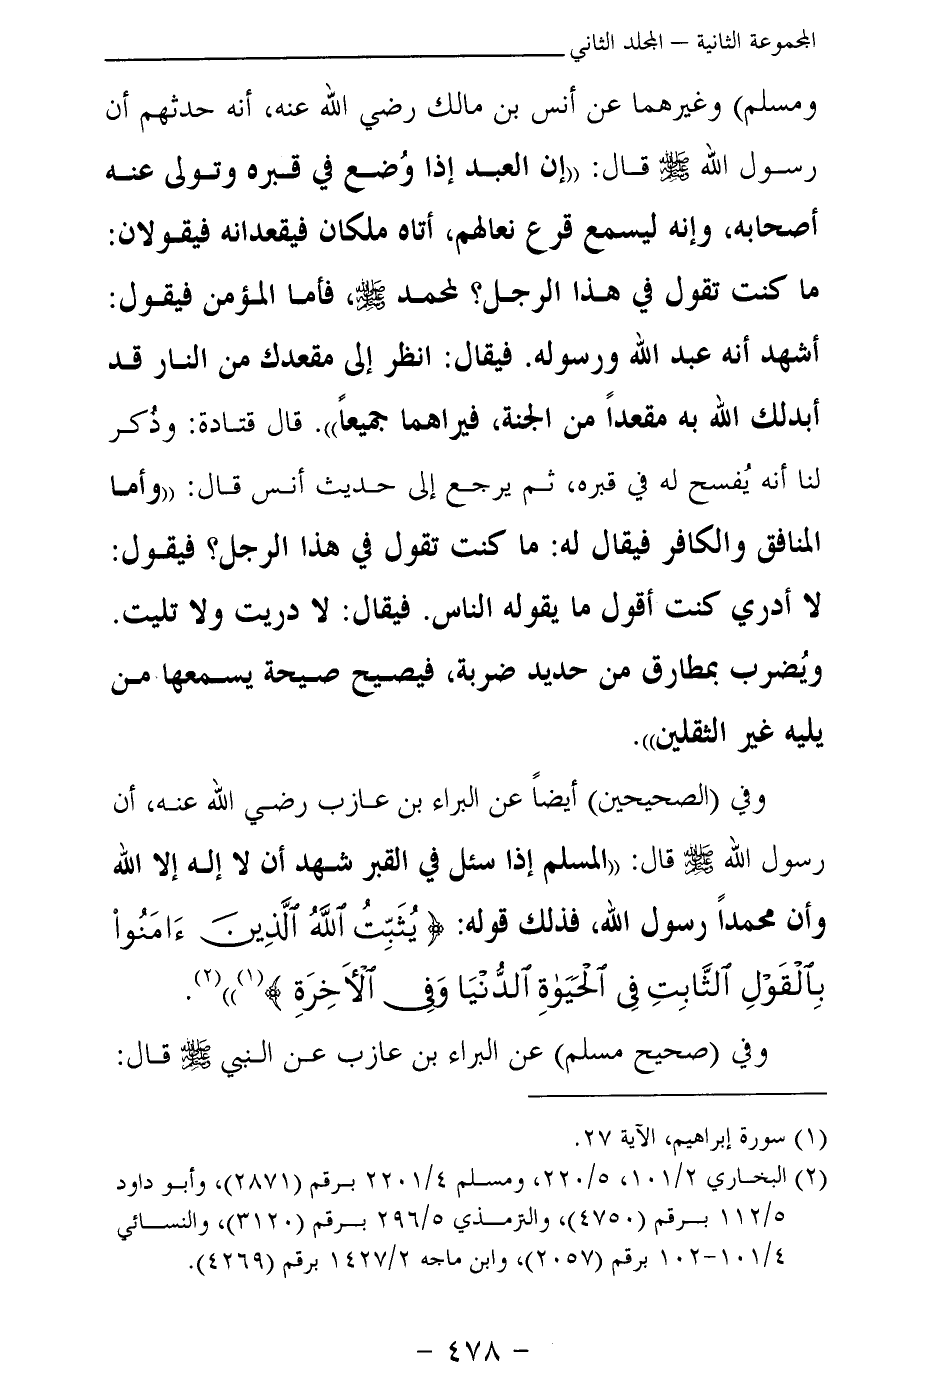 المجموعة الثانية – المجلد الثاني
ومسلم) وغيرهما عن أنس بن مالك رضي الله عنه، أنه حدثهم أن
رسول الله ﷺ قال: ((إن العبد إذا وُضع في قبره وتولى عنه
أصحابه، وإنه ليسمع قرع نعالهم، أتاه ملكان فيقعدانه فيقولان:
ما كنت تقول في هذا الرجل؟ لمحمد ﷺ، فأما المؤمن فيقول:
أشهد أنه عبد الله ورسوله. فيقال: انظر إلى مقعدك من النار قد
أبدلك الله به مقعداً من الجنة، فيراهما جميعاً)). قال قتادة: وذُكر
لنا أنه يُفسح له في قبره، ثم يرجع إلى حديث أنس قال: ((وأما
المنافق والكافر فيقال له: ما كنت تقول في هذا الرجل؟ فيقول:
لا أدري كنت أقول ما يقوله الناس. فيقال: لا دريت ولا تليت.
ويُضرب بمطارق من حديد ضربة، فيصيح صيحة يسمعها من
يليه غير الثقلين)).
وفي (الصحيحين) أيضاً عن البراء بن عازب رضي الله عنه، أن
رسول الله ﷺ قال: ((المسلم إذا سئل في القبر شهد أن لا إله إلا الله
وأن محمداً رسول الله، فذلك قوله: ﴿ يُثَبِّتُ ٱللَّهُ ٱلَّذِينَ ءَامَنُوا۟
بِٱلْقَوْلِ ٱلثَّابِتِ فِى ٱلْحَيَوٰةِ ٱلدُّنْيَا وَفِى ٱلْأَخِرَةِ ﴾(١)))(٢).
وفي (صحيح مسلم) عن البراء بن عازب عن النبي ﷺ قال:
(١) سورة إبراهيم، الآية ٢٧.
(٢) البخاري ١٠١/٢، ٢٢٠/٥، ومسلم ٢٢٠١/٤ برقم (٢٨٧١)، وأبو داود
١١٢/٥ برقم (٤٧٥٠)، والترمذي ٢٩٦/٥ برقم (٣١٢٠)، والنسائي
١٠١/٤-١٠٢ برقم (٢٠٥٧)، وابن ماجه ١٤٢٧/٢ برقم (٤٢٦٩).
– ٤٧٨ –